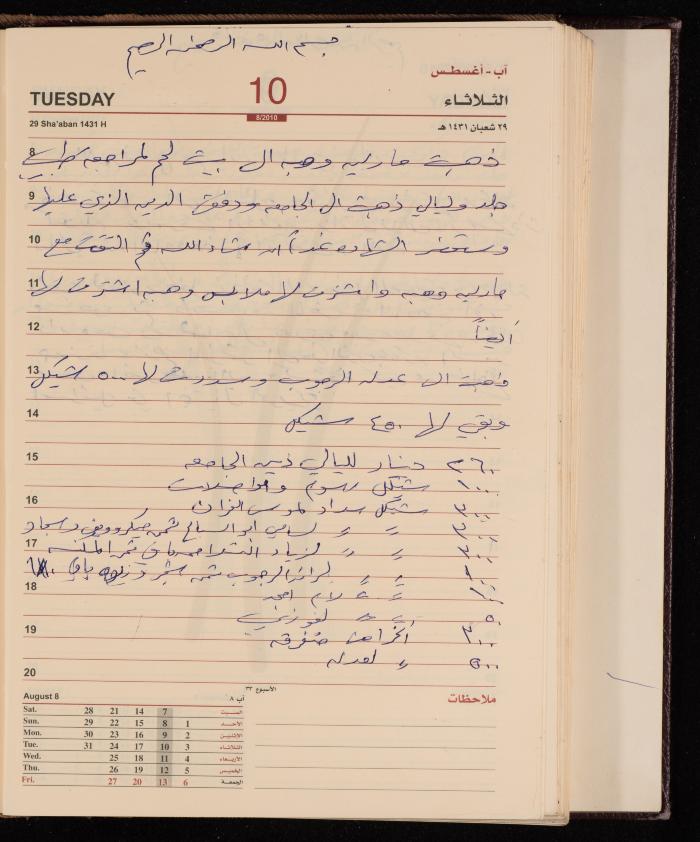 بسم الله الرحمن الرحيم
آب - أغسطس
TUESDAY 10 الثلاثاء
8/2010
29 Sha'aban 1431 H ٢٩ شعبان ١٤٣١ هـ
8 ذهبت ماريه وهبه الى بيت لحم لمراجعه طبيب
9 جلد وليالي ذهبت الى الجامعه ودفعت الدين الذي عليها
10 وستحضر الشهاده غداً ان شاء الله ثم التقت مع
11 ماريه وهبه واشترت لها ملابس وهبه اشترت لها
12 أيضاً
13 ذهبت الى عدله الرجوب وسددت لها ٥٠٠ شيكل
14 وبقي لها ٤٥٠ شيكل
15 ٢٦٠ دينار لليالي دين الجامعه
١٠٠ شيكل رسوم ومواصلات
16 ٣٠٠ شيكل سداد لموسى
٣٠٠ = = لسامي ابو السباع ثمن ميكروويف
17 ٣٠٠ = = لزياد
= = الرجوب ثمن
18 ١٠٠ = = لام امجد
٥٠ = = لفوزي
19 ٣٠٠ اغراض متفرقه
٥٠٠ = لعدله
20
August 8 آب ٨
الأسبوع ٣٢
ملاحظات
Sat. 28 21 14 7 السبت
Sun. 29 22 15 8 1 الأحد
Mon. 30 23 16 9 2 الإثنين
Tue. 31 24 17 10 3 الثلاثاء
Wed. 25 18 11 4 الأربعاء
Thu. 26 19 12 5 الخميس
Fri. 27 20 13 6 الجمعة